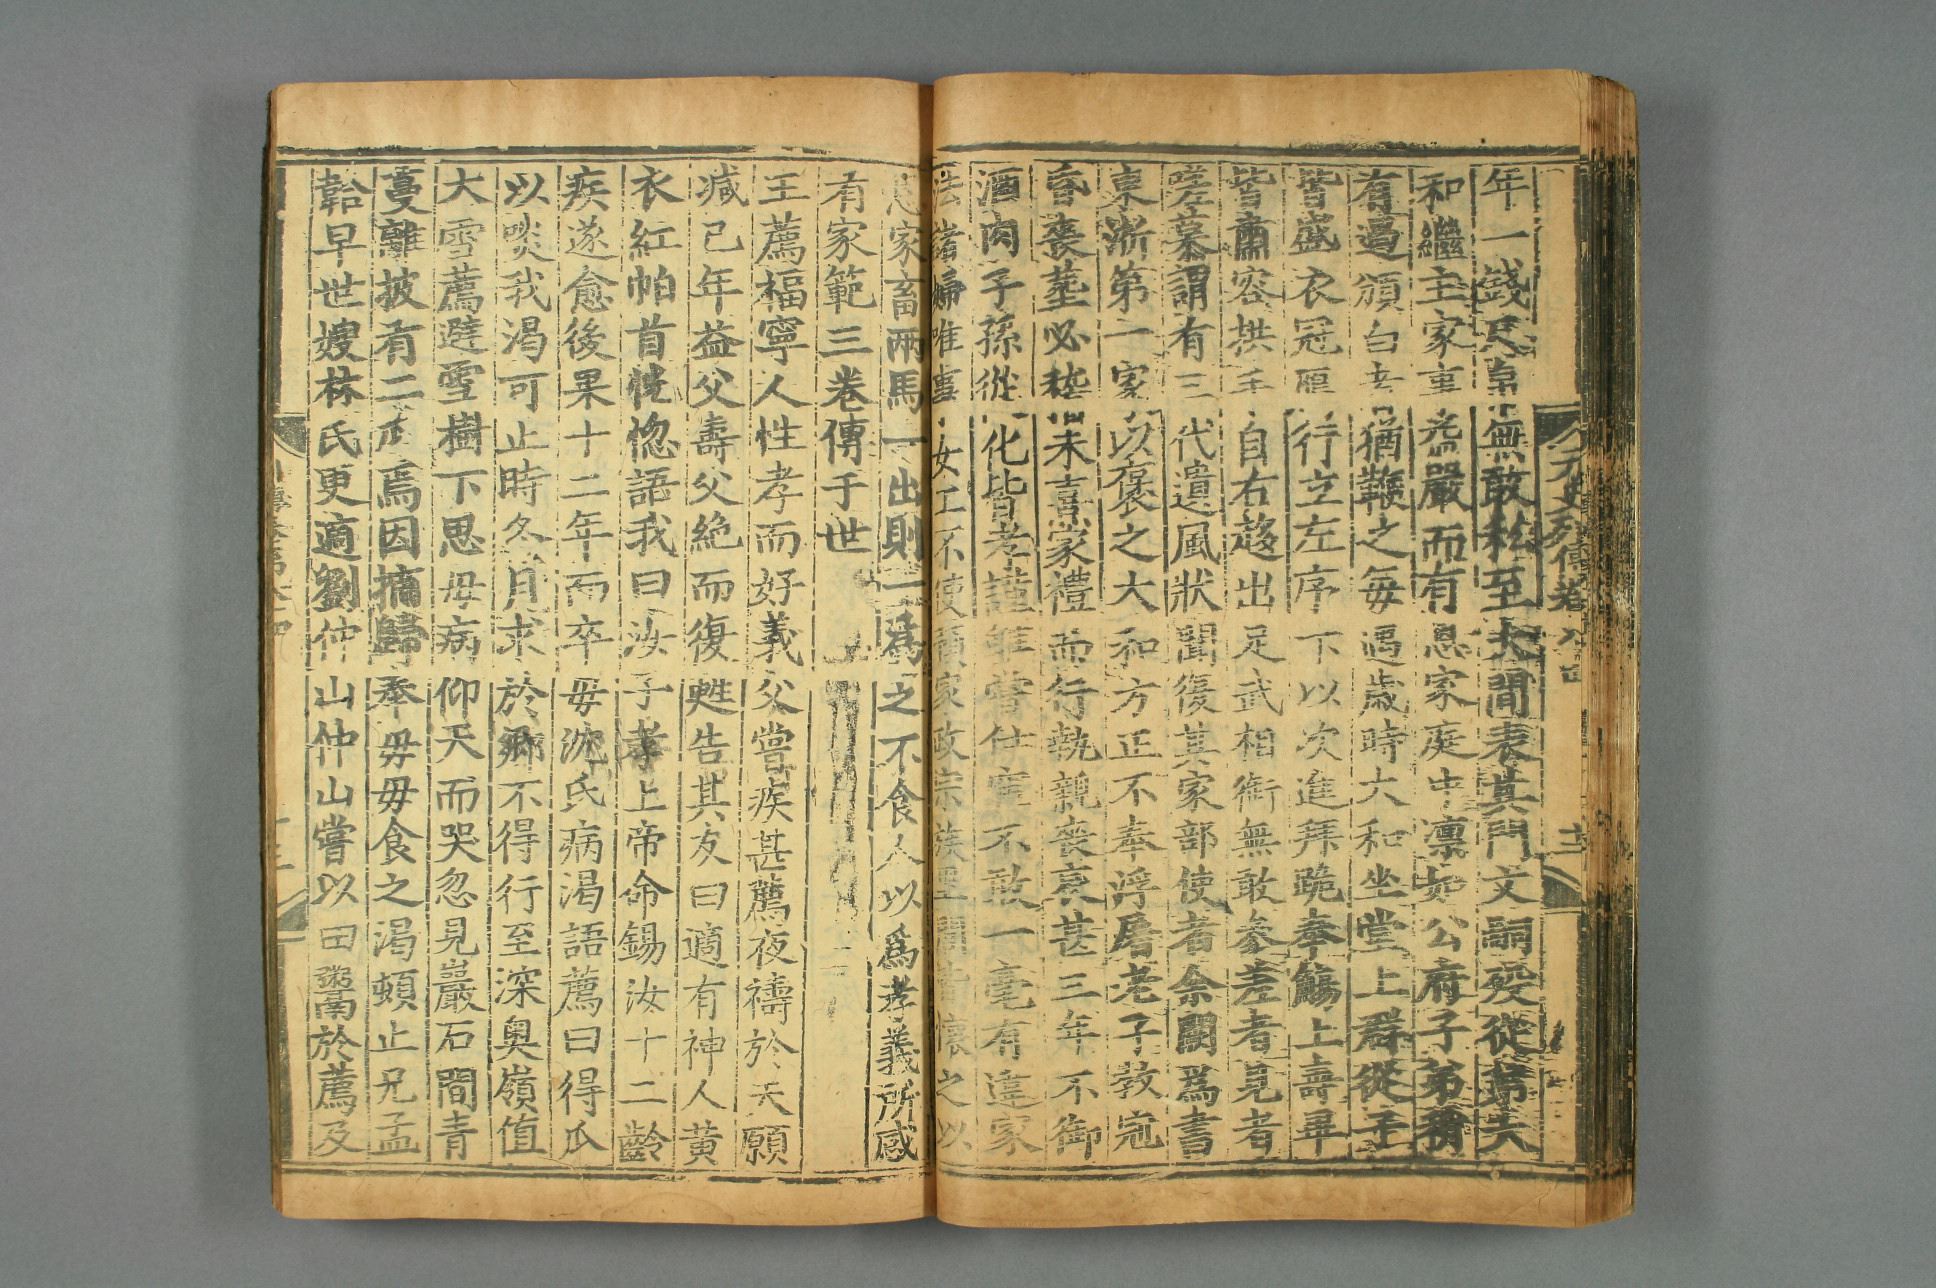 年一錢尺帛無敢私至大間表其門文嗣歿從弟大
和繼主家事益嚴而有恩家庭中凜如公府子弟稍
有過頒白者猶鞭之每遇歲時大和坐堂上群從子
皆盛衣冠鴈行立左序下以次進拜跪奉觴上壽畢
皆肅容拱手自右趍出足武相銜無敢參差者見者
嗟慕謂有三代遺風狀聞復其家部使者余闕爲書
東浙第一家以襃之大和方正不奉浮屠老子教冠
昏喪葬必稽朱熹家禮而行執親喪哀甚三年不御
酒肉子孫從化皆孝謹雖嘗仕宦不敢一毫有違家
法諸婦唯事女工不使預家政宗族里閭皆懷之以
恩家畜兩馬一出則一爲之不食人以爲孝義所感
有家範三卷傳于世
王薦福寧人性孝而好義父嘗疾甚薦夜禱於天願
減己年益父壽父絶而復甦告其友曰適有神人黃
衣紅帕首恍惚語我曰汝子孝上帝命錫汝十二齡
疾遂愈後果十二年而卒母沈氏病渴語薦曰得瓜
以啖我渴可止時冬月求於鄉不得行至深奧嶺值
大雪薦避雪樹下思母病仰天而哭忽見巖石間青
蔓離披有二瓜焉因摘歸奉母母食之渴頓止兄孟
韐早世嫂林氏更適劉仲山仲山嘗以田鬻於薦及
元史列傳卷八十四
十二